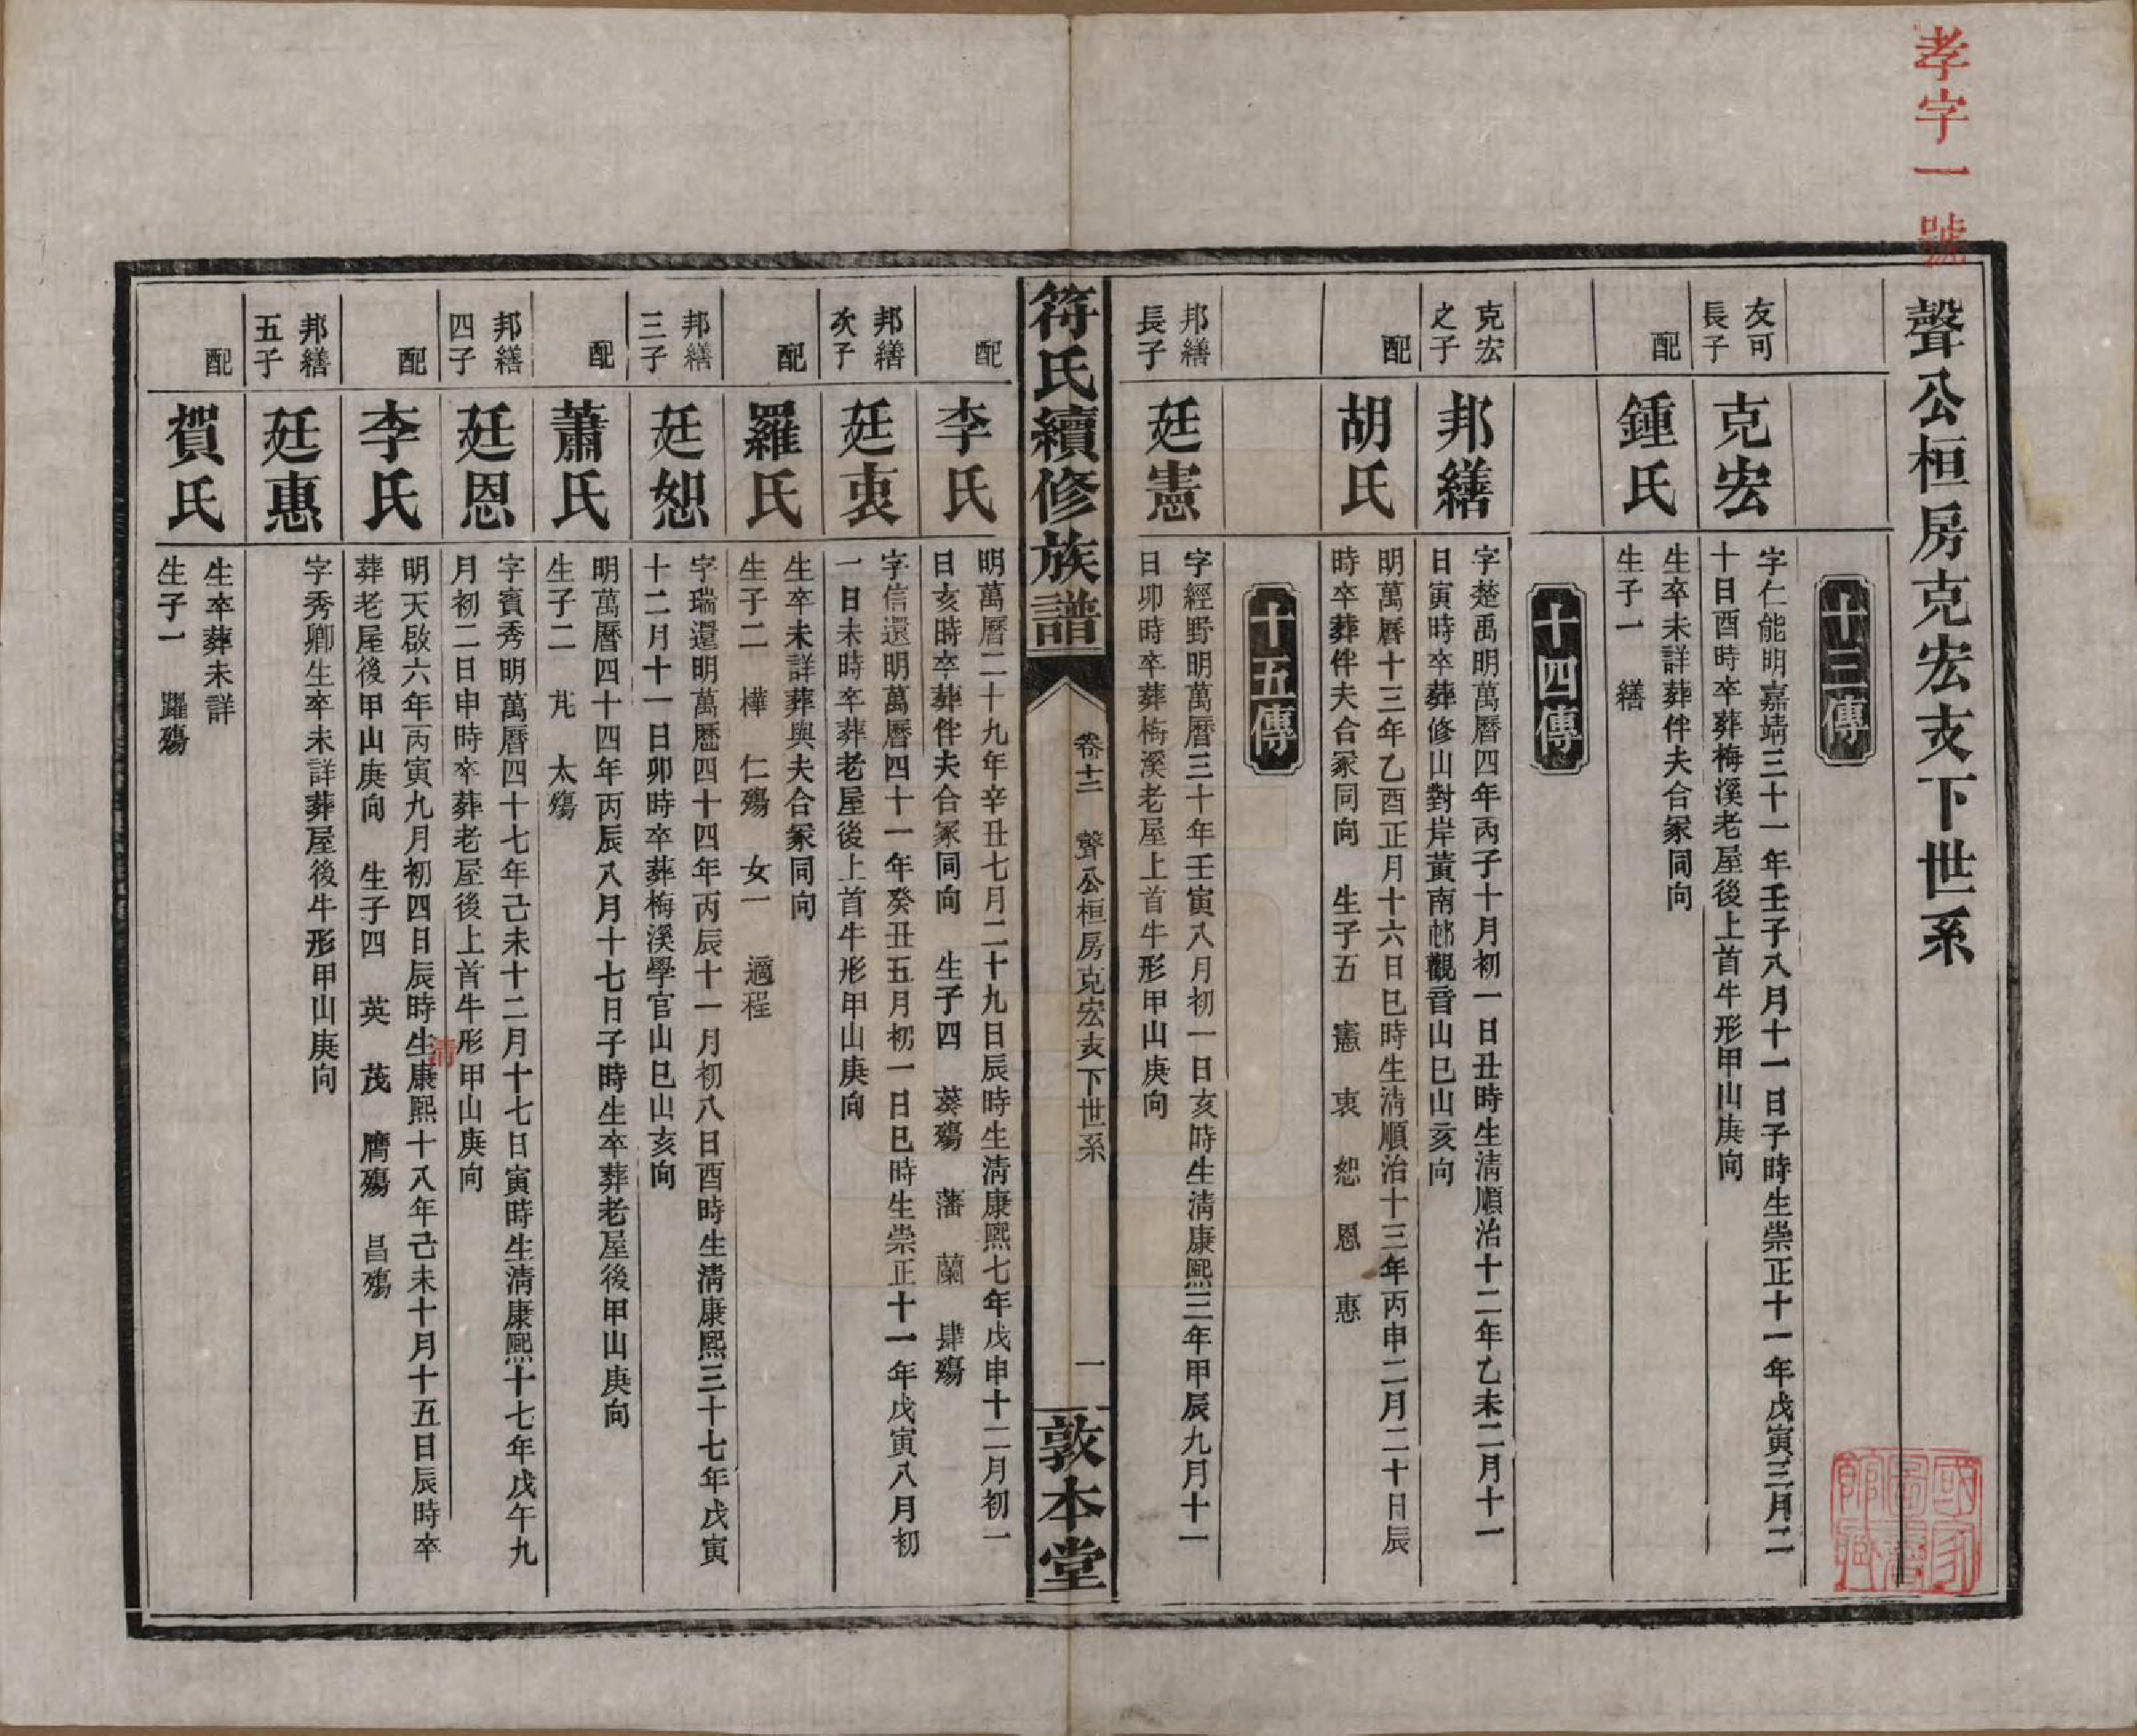 孝字一號
聲公桓房克宏支下世系
十三傳
友可
長子
克宏
字仁能明嘉靖三十一年壬子八月十一日子時生崇正十一年戊寅三月二
十日酉時卒葬梅溪老屋後上首牛形甲山庚向
配
鍾氏
生卒未詳葬伴夫合冢同向
生子一 繕
十四傳
克宏
之子
邦繕
字楚禹明萬曆四年丙子十月初一日丑時生清順治十二年乙未二月十一
日寅時卒葬修山對岸黃南邨觀音山巳山亥向
配
胡氏
明萬曆十三年乙酉正月十六日巳時生清順治十三年丙申二月二十日辰
時卒葬伴夫合冢同向 生子五 憲 衷 恕 恩 惠
十五傳
邦繕
長子
廷憲
字經野明萬曆三十年壬寅八月初一日亥時生清康熙三年甲辰九月十一
日卯時卒葬梅溪老屋上首牛形甲山庚向
符氏續修族譜
卷十二 聲公桓房克宏支下世系
一
敦本堂
配
李氏
明萬曆二十九年辛丑七月二十九日辰時生清康熙七年戊申十二月初一
日亥時卒葬伴夫合冢同向 生子四 葵殤 藩 蘭 肆殤
邦繕
次子
廷衷
字信還明萬曆四十一年癸丑五月初一日巳時生崇正十一年戊寅八月初
一日未時卒葬老屋後上首牛形甲山庚向
配
羅氏
生卒未詳葬與夫合冢同向
生子二 樺 仁殤 女一 適程
邦繕
三子
廷恕
字瑞還明萬曆四十四年丙辰十一月初八日酉時生清康熙三十七年戊寅
十二月十一日卯時卒葬梅溪學官山巳山亥向
配
蕭氏
明萬曆四十四年丙辰八月十七日子時生卒葬老屋後甲山庚向
生子二 芃 太殤
邦繕
四子
廷恩
字賓秀明萬曆四十七年己未十二月十七日寅時生清康熙十七年戊午九
月初二日申時卒葬老屋後上首牛形甲山庚向
配
李氏
明天啟六年丙寅九月初四日辰時生清康熙十八年己未十月十五日辰時卒
葬老屋後甲山庚向 生子四 英 茂 膺殤 昌殤
邦繕
五子
廷惠
字秀卿生卒未詳葬屋後牛形甲山庚向
配
賀氏
生卒葬未詳
生子一 躍殤
國家圖書館藏